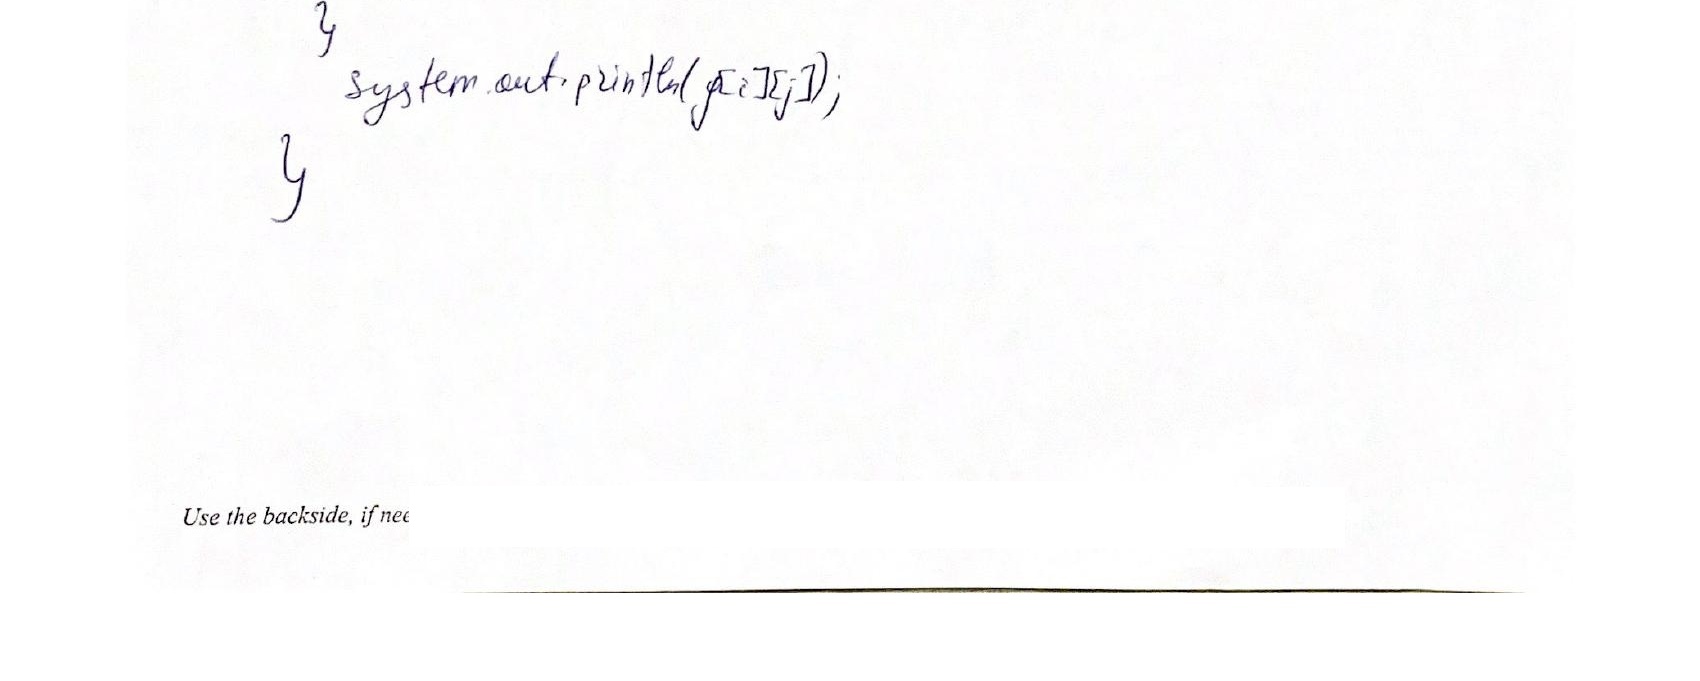 }
system.out.println(p[i][j]);
}
Use the backside, if nee